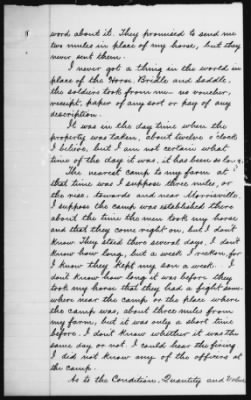 word about it. They promised to send me
two mules in place of my horse, but they
never sent them.
I never got a thing in the world in
place of the Horse, Bridle and Saddle,
the soldiers took from me no voucher,
receipt, paper of any sort or pay of any
description.
It was in the day time when the
property was taken, about twelve o'clock
I believe, but I am not certain what
time of the day it was, it has been so long.
The nearest camp to my farm at
that time was I suppose three miles, or
the rise. towards and near
I suppose the camp was established there
about the time the men took my horse
and that they come right on, but I don't
know They staid there several days. I don't
know how long, but a week I reckon, for
I know they kept my son a week. I
don't know how long it was before they
took my horse that they had a fight some-
where near the camp or the place where
the camp was, about three miles from
my farm, but it was only a short time
before. I don't know whether it was the
same day or not. I could hear the firing
I did not know any of the officers at
the camp.
As to the Condition, Quantity and Value